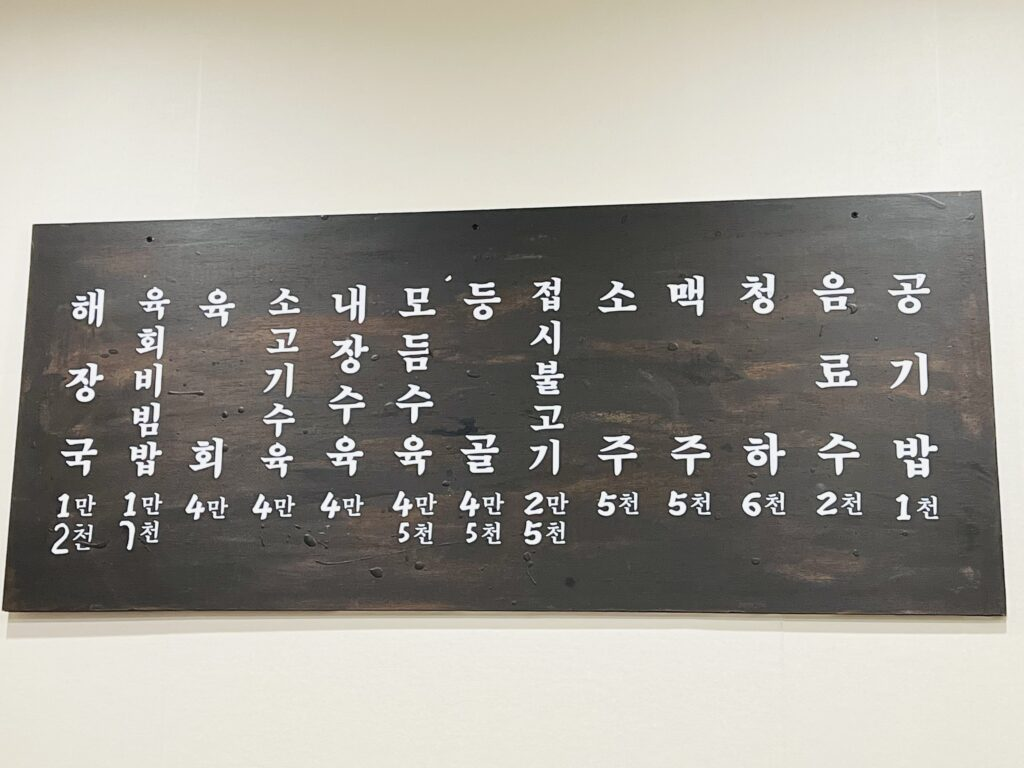 해장국 1만2천
육회비빔밥 1만7천
육회 4만
소고기수육 4만
내장수육 4만
모듬수육 4만5천
등골 4만5천
접시불고기 2만5천
소주 5천
맥주 5천
청하 6천
음료수 2천
공기밥 1천